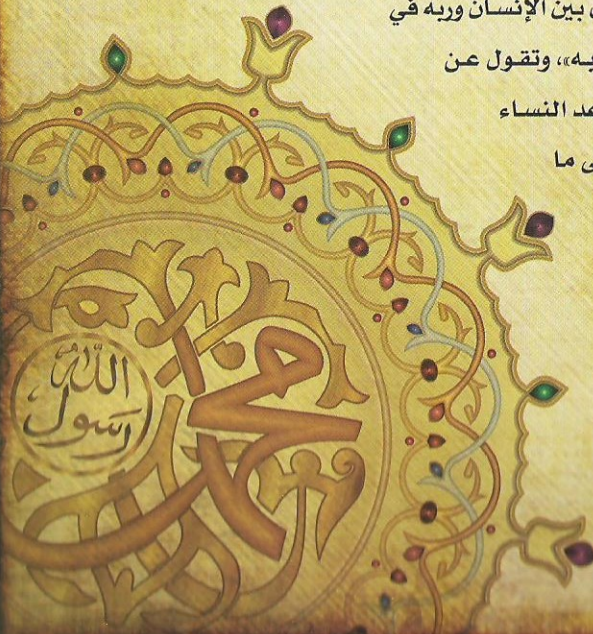 بين الإنسان وربه في
به»، وتقول عن
النساء
ما
محمد
رسول
الله